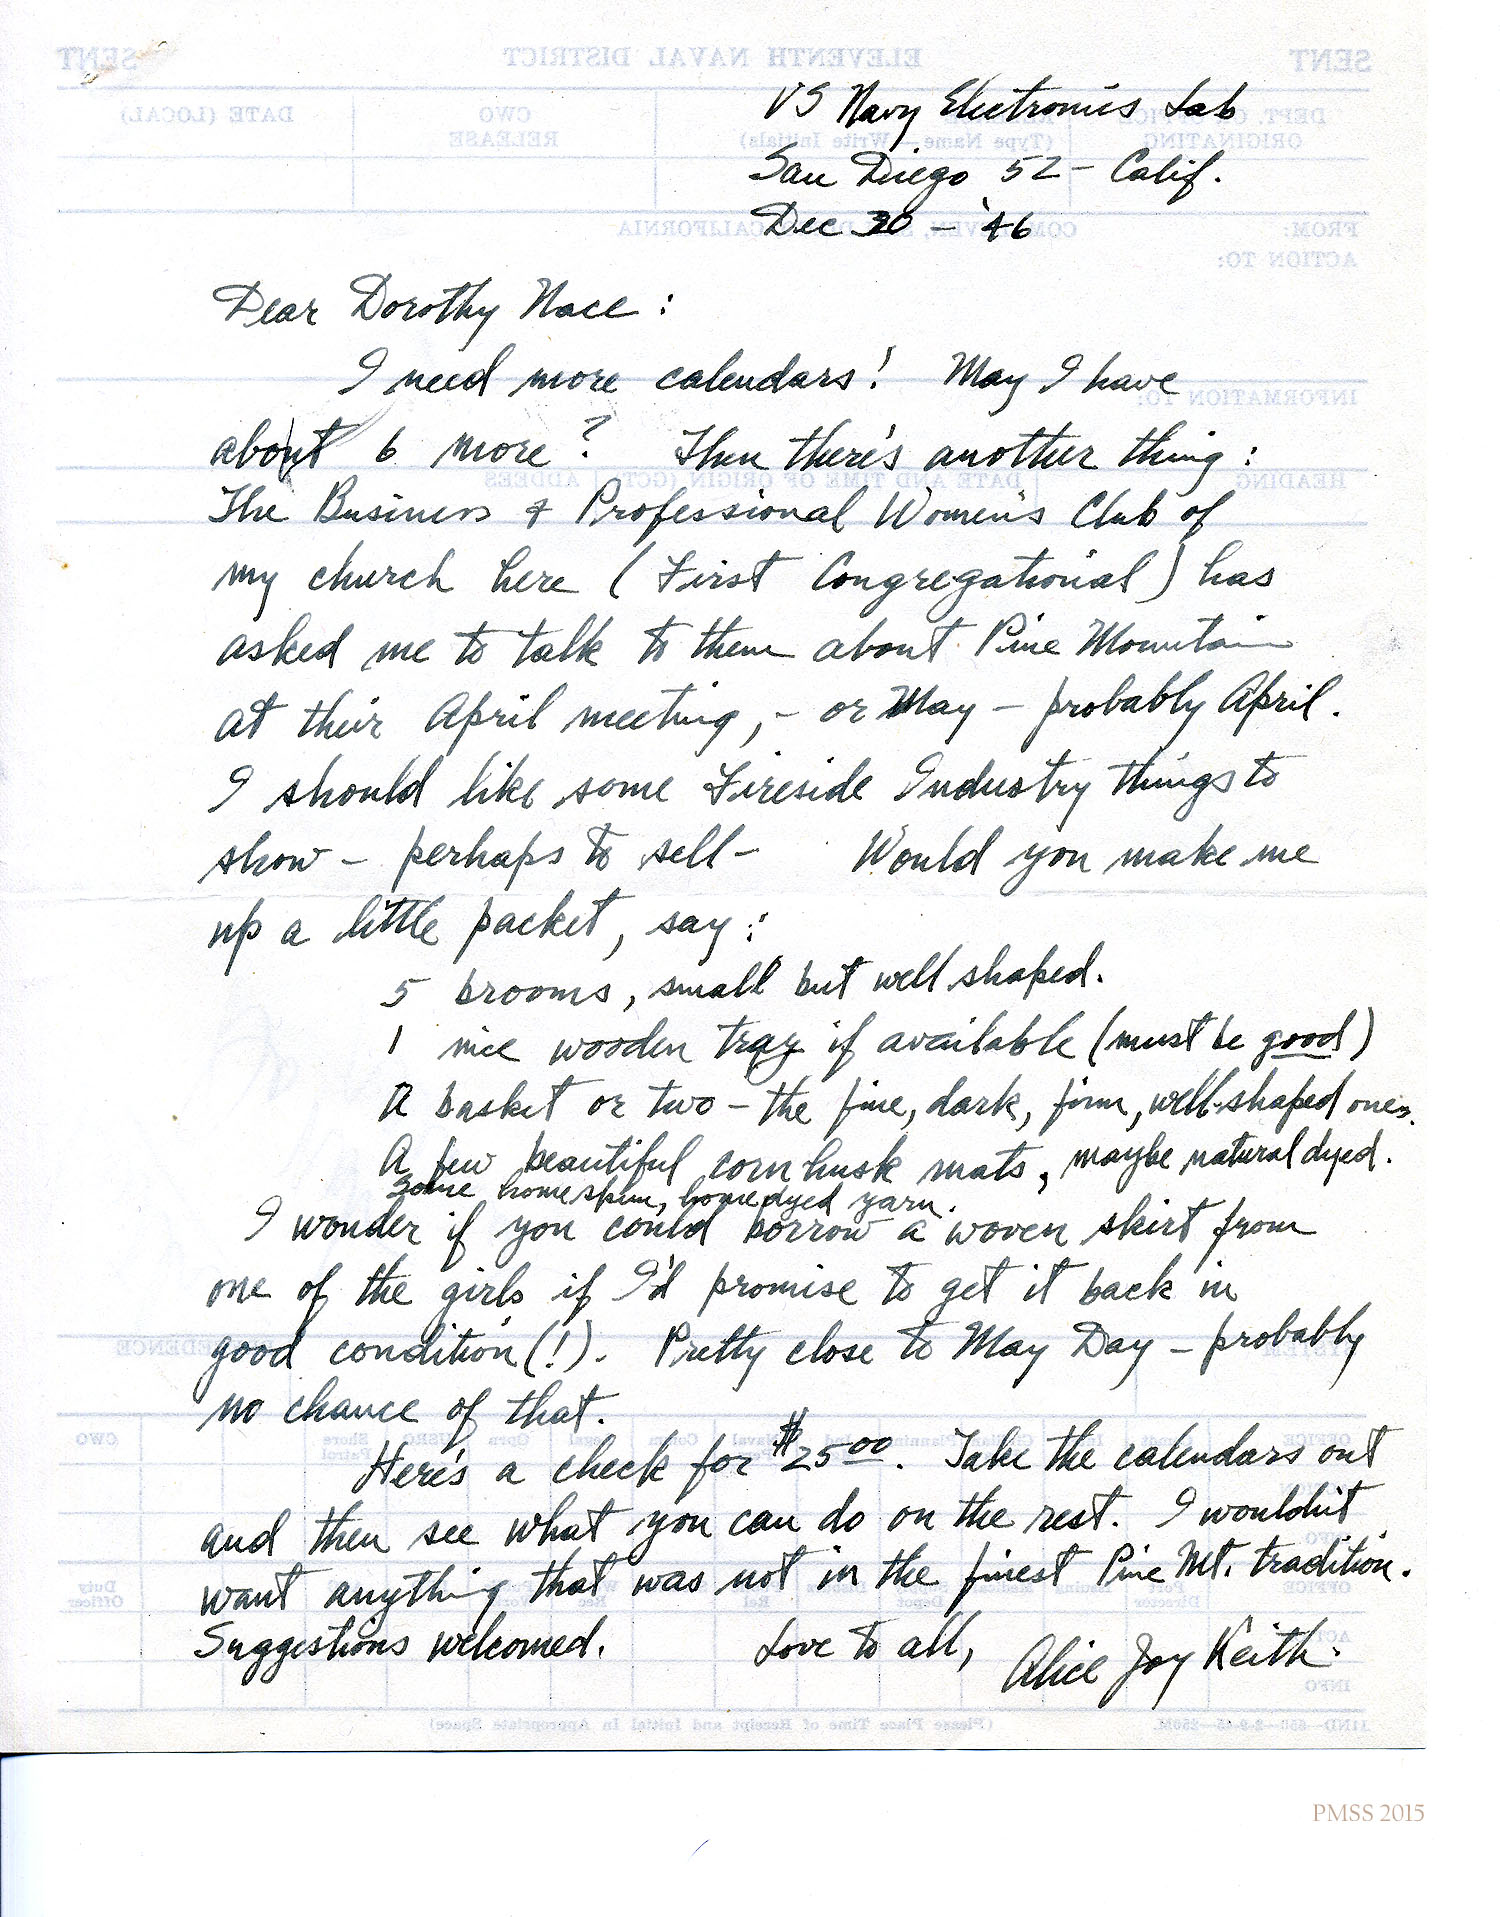 US Navy Electronics Lab
San Diego 52 - Calif.
Dec 30 - '46
Dear Dorothy Nace :
I need more calendars! May I have
about 6 more? Then there's another thing :
The Business & Professional Women's Club of
my church here (First Congregational) has
asked me to talk to them about Pine Mountain
at their April meeting, - or May - probably April.
I should like some Fireside Industry things to
show - perhaps to sell - Would you make me
up a little packet, say :
5 brooms, small but well shaped.
1 nice wooden tray if available (must be good)
A basket or two - the fine, dark, firm, well-shaped ones.
A few beautiful corn husk mats, maybe natural dyed.
Some homespun, homedyed yarn.
I wonder if you could borrow a woven skirt from
one of the girls if I'd promise to get it back in
good condition (!). Pretty close to May Day - probably
no chance of that.
Here's a check for $25.00. Take the calendars out
and then see what you can do on the rest. I wouldn't
want anything that was not in the finest Pine Mt. tradition.
Suggestions welcomed. Love to all, Alice Joy Keith.
PMSS 2015